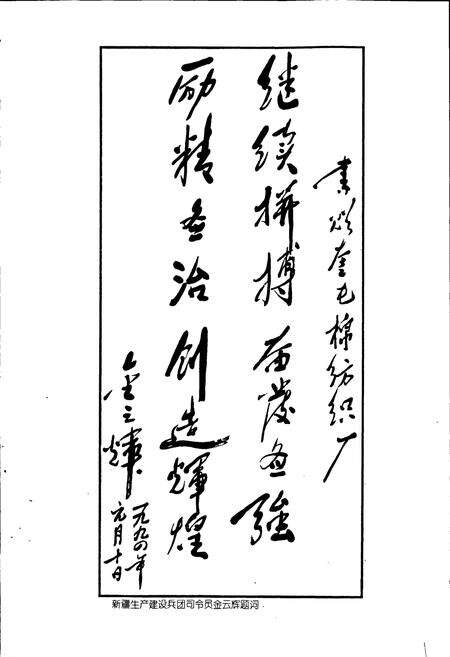 书颂奎屯棉纺织厂
继续拼搏奋发图强
励精图治创造輝煌
金云輝
一九九四年
元月十日
新疆生产建设兵团司令员金云辉题词